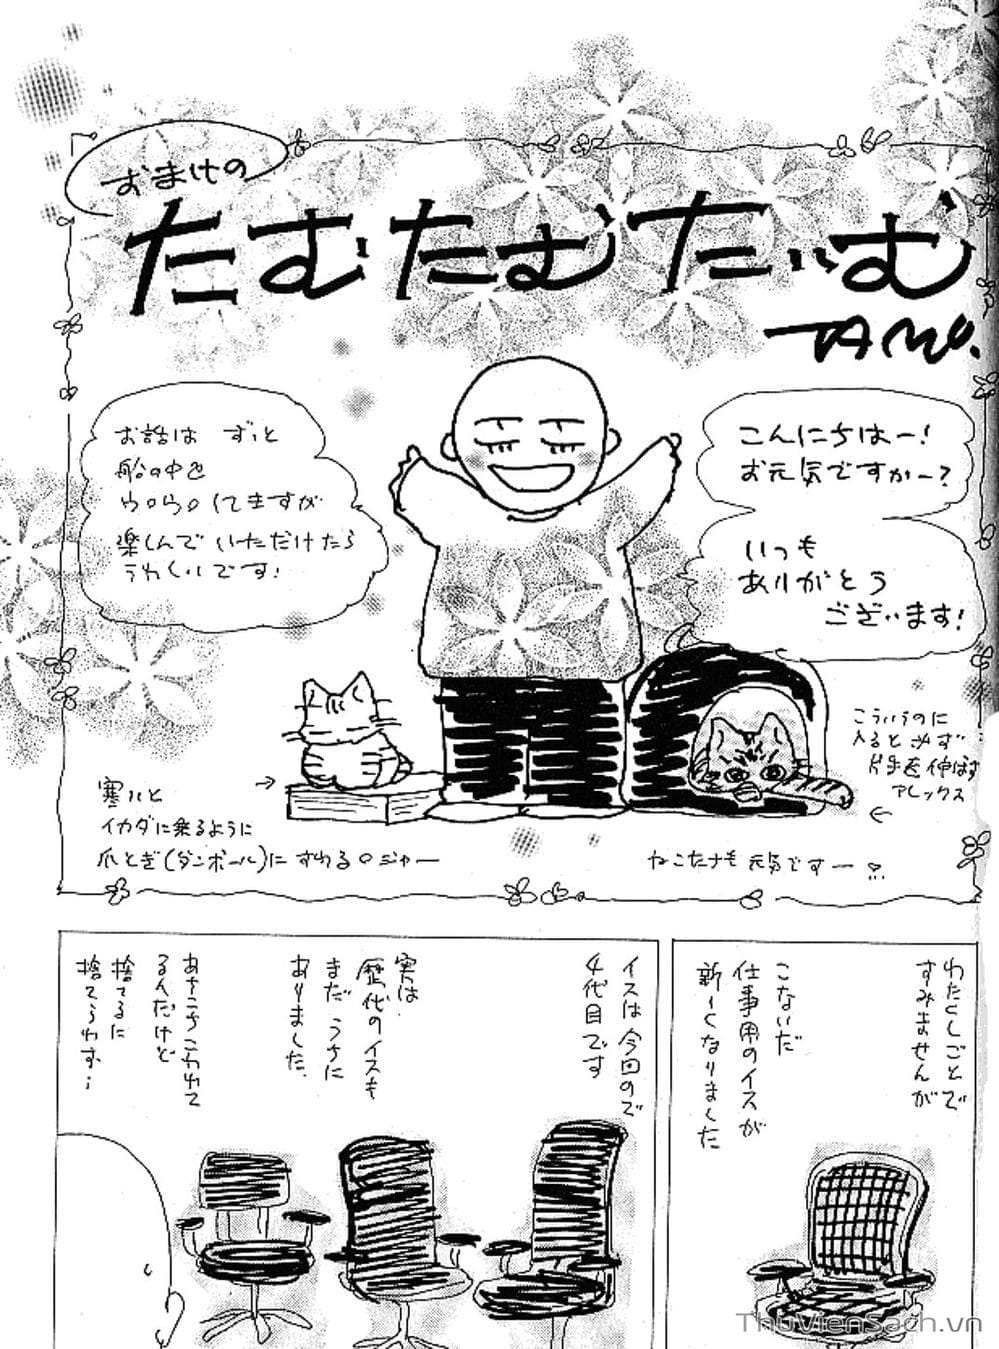 おまけの
たむたむたいむ
TAMU.
こんにちはー!
お元気ですかー?
いつも
ありがとう
ございます!
お話は ずっと
船の中を
ウロウロしてますが
楽しんでいただけたら
うれしいです!
こういうのに
入ると必ず
片手を伸ばす
アレックス
寒いと
イカダに乗るように
爪とぎ(ダンボール)に すわるロジャー
ねこたちも 元気ですー
わたくしごとで
すみませんが
こないだ
仕事用のイスが
新しくなりました
イスは今回ので
4代目です
実は
歴代のイスも
まだうちに
ありました
あちこちこわれて
るんだけど
捨てるに
捨てられず…
ThuVienSach.vn